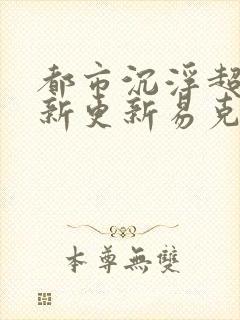 都市沉浮超
新更新易克
本尊無雙